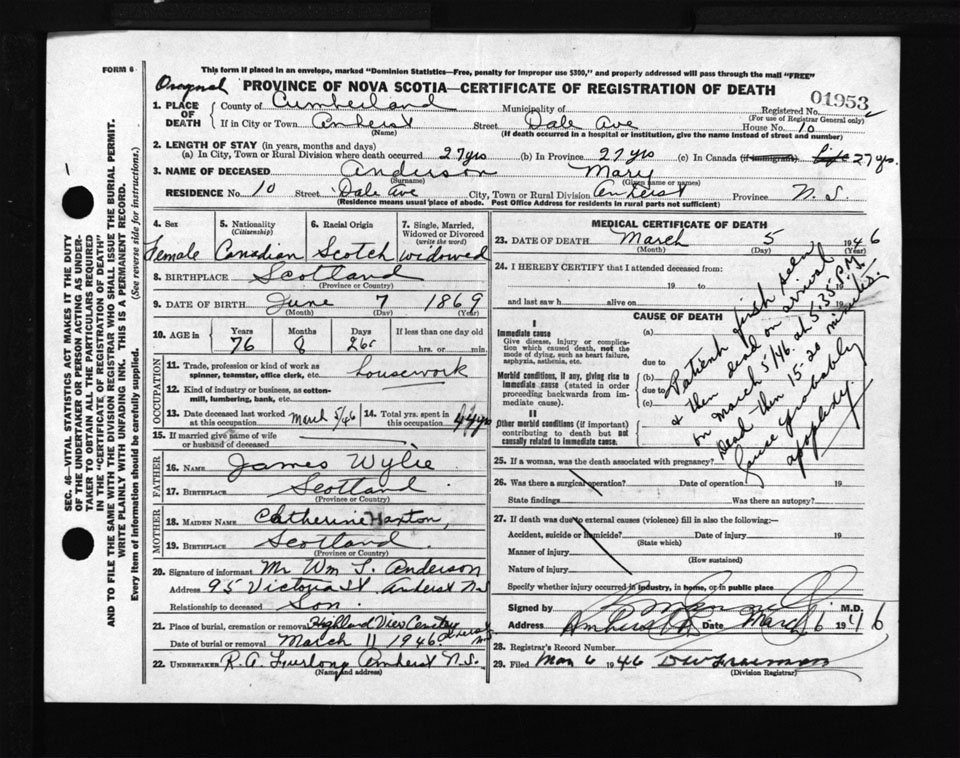 FORM 6
This form if placed in an envelope, marked "Dominion Statistics—Free, penalty for improper use $300," and properly addressed will pass through the mail "FREE"
Original PROVINCE OF NOVA SCOTIA—CERTIFICATE OF REGISTRATION OF DEATH
01953
1. PLACE OF DEATH County of Cumberland Municipality of Registered No.
(For use of Registrar General only)
If in City or Town Amherst Street Dale Ave House No. 10
(Name) (If death occurred in a hospital or institution, give the name instead of street and number)
2. LENGTH OF STAY (in years, months and days)
(a) In City, Town or Rural Division where death occurred 27 yrs (b) In Province 27 yrs (c) In Canada (if immigrant) life 27 yrs.
3. NAME OF DECEASED Anderson Mary
(Given name or names)
RESIDENCE No. 10 Street Dale Ave City, Town or Rural Division Amherst Province N.S.
(Residence means usual place of abode. Post Office Address for residents in rural parts not sufficient)
4. Sex 5. Nationality 6. Racial Origin 7. Single, Married, Widowed or Divorced
(Citizenship) (write the word)
Female Canadian Scotch widowed
8. BIRTHPLACE Scotland
(Province or Country)
9. DATE OF BIRTH June 7 1869
(Month) (Day) (Year)
10. AGE in Years Months Days If less than one day old
76 8 26 hrs. or min.
OCCUPATION
11. Trade, profession or kind of work as spinner, teamster, office clerk, etc. housework
12. Kind of industry or business, as cotton-mill, lumbering, bank, etc.
13. Date deceased last worked at this occupation March 5/46 14. Total yrs. spent in this occupation 44 yrs
15. If married give name of wife or husband of deceased
FATHER
16. NAME James Wylie
17. BIRTHPLACE Scotland
(Province or Country)
MOTHER
18. MAIDEN NAME Catherine Haxton,
19. BIRTHPLACE Scotland.
(Province or Country)
20. Signature of informant Mr Wm J. Anderson
Address 95 Victoria St Amherst NS
Relationship to deceased Son.
21. Place of burial, cremation or removal Highland View Cemetery Amherst
Date of burial or removal March 11 1946.
22. UNDERTAKER R.A. Furlong Amherst N.S.
(Name and address)
MEDICAL CERTIFICATE OF DEATH
23. DATE OF DEATH March 5 1946
(Month) (Day) (Year)
24. I HEREBY CERTIFY that I attended deceased from:
19 to 19
and last saw h alive on 19
CAUSE OF DEATH
I
Immediate cause
Give disease, injury or complication which caused death, not the mode of dying, such as heart failure, asphyxia, asthenia, etc.
Morbid conditions, if any, giving rise to immediate cause (stated in order proceeding backwards from immediate cause).
II
Other morbid conditions (if important) contributing to death but not causally related to immediate cause.
(a)
due to
(b)
due to
(c)
Patient first seen
& then dead on arrival
on March 5/46 at 5:35 P.M.
Dead then 15-20 minutes.
Cause probably
apoplexy.
25. If a woman, was the death associated with pregnancy?
26. Was there a surgical operation? Date of operation 19
State findings Was there an autopsy?
27. If death was due to external causes (violence) fill in also the following:—
Accident, suicide or homicide? Date of injury 19
(State which)
Manner of injury
(How sustained)
Nature of injury
Specify whether injury occurred in industry, in home, or in public place
Signed by M.D.
Address Amherst NS Date March 6 1946
28. Registrar's Record Number
29. Filed Mar 6 1946
(Division Registrar)
SEC. 46—VITAL STATISTICS ACT MAKES IT THE DUTY
OF THE UNDERTAKER OR PERSON ACTING AS UNDER-
TAKER TO OBTAIN ALL THE PARTICULARS REQUIRED
IN THE "CERTIFICATE OF REGISTRATION OF DEATH"
AND TO FILE THE SAME WITH THE DIVISION REGISTRAR WHO SHALL ISSUE THE BURIAL PERMIT.
WRITE PLAINLY WITH UNFADING INK. THIS IS A PERMANENT RECORD.
Every item of information should be carefully supplied. (See reverse side for instructions.)